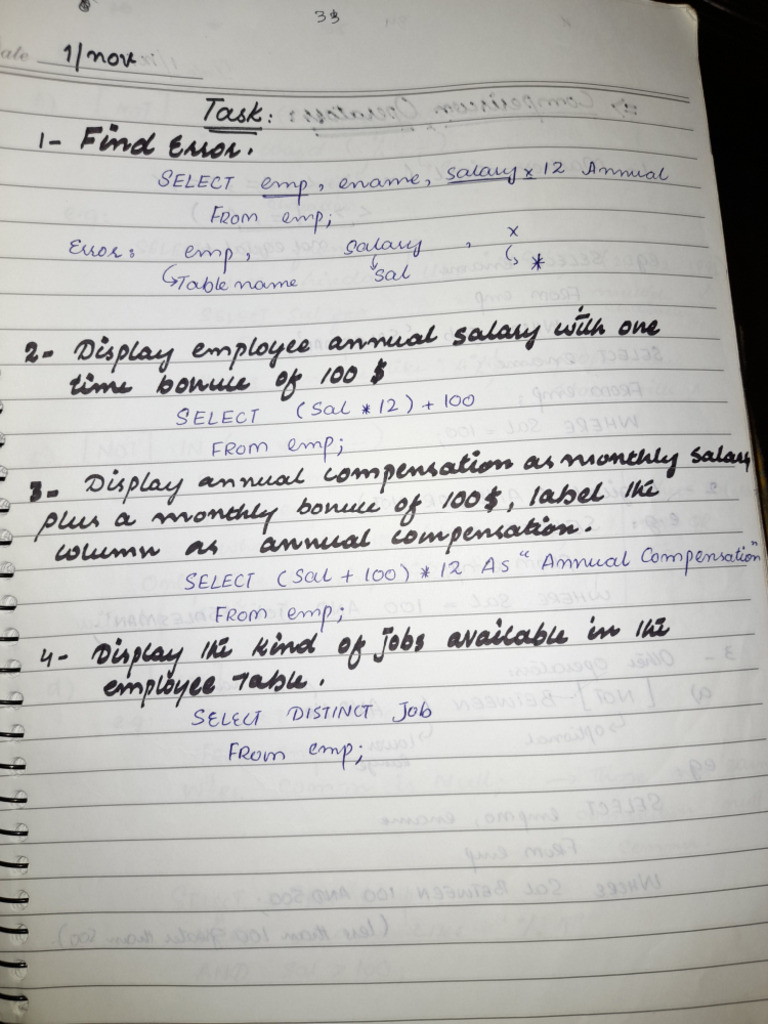 33
Date 1/nov
Task:
1- Find Error.
SELECT emp, ename, salary x 12 Annual
From emp;
Error: emp, salary, x
Table name sal *
2- Display employee annual salary with one
time bonuce of 100 $
SELECT (Sal * 12) + 100
From emp;
3- Display annual compensation as monthly salary
plus a monthly bonuce of 100$, label the
column as annual compensation.
SELECT (Sal + 100) * 12 As "Annual Compensation"
From emp;
4- Display the kind of jobs available in the
employee Table.
SELECT DISTINCT Job
From emp;